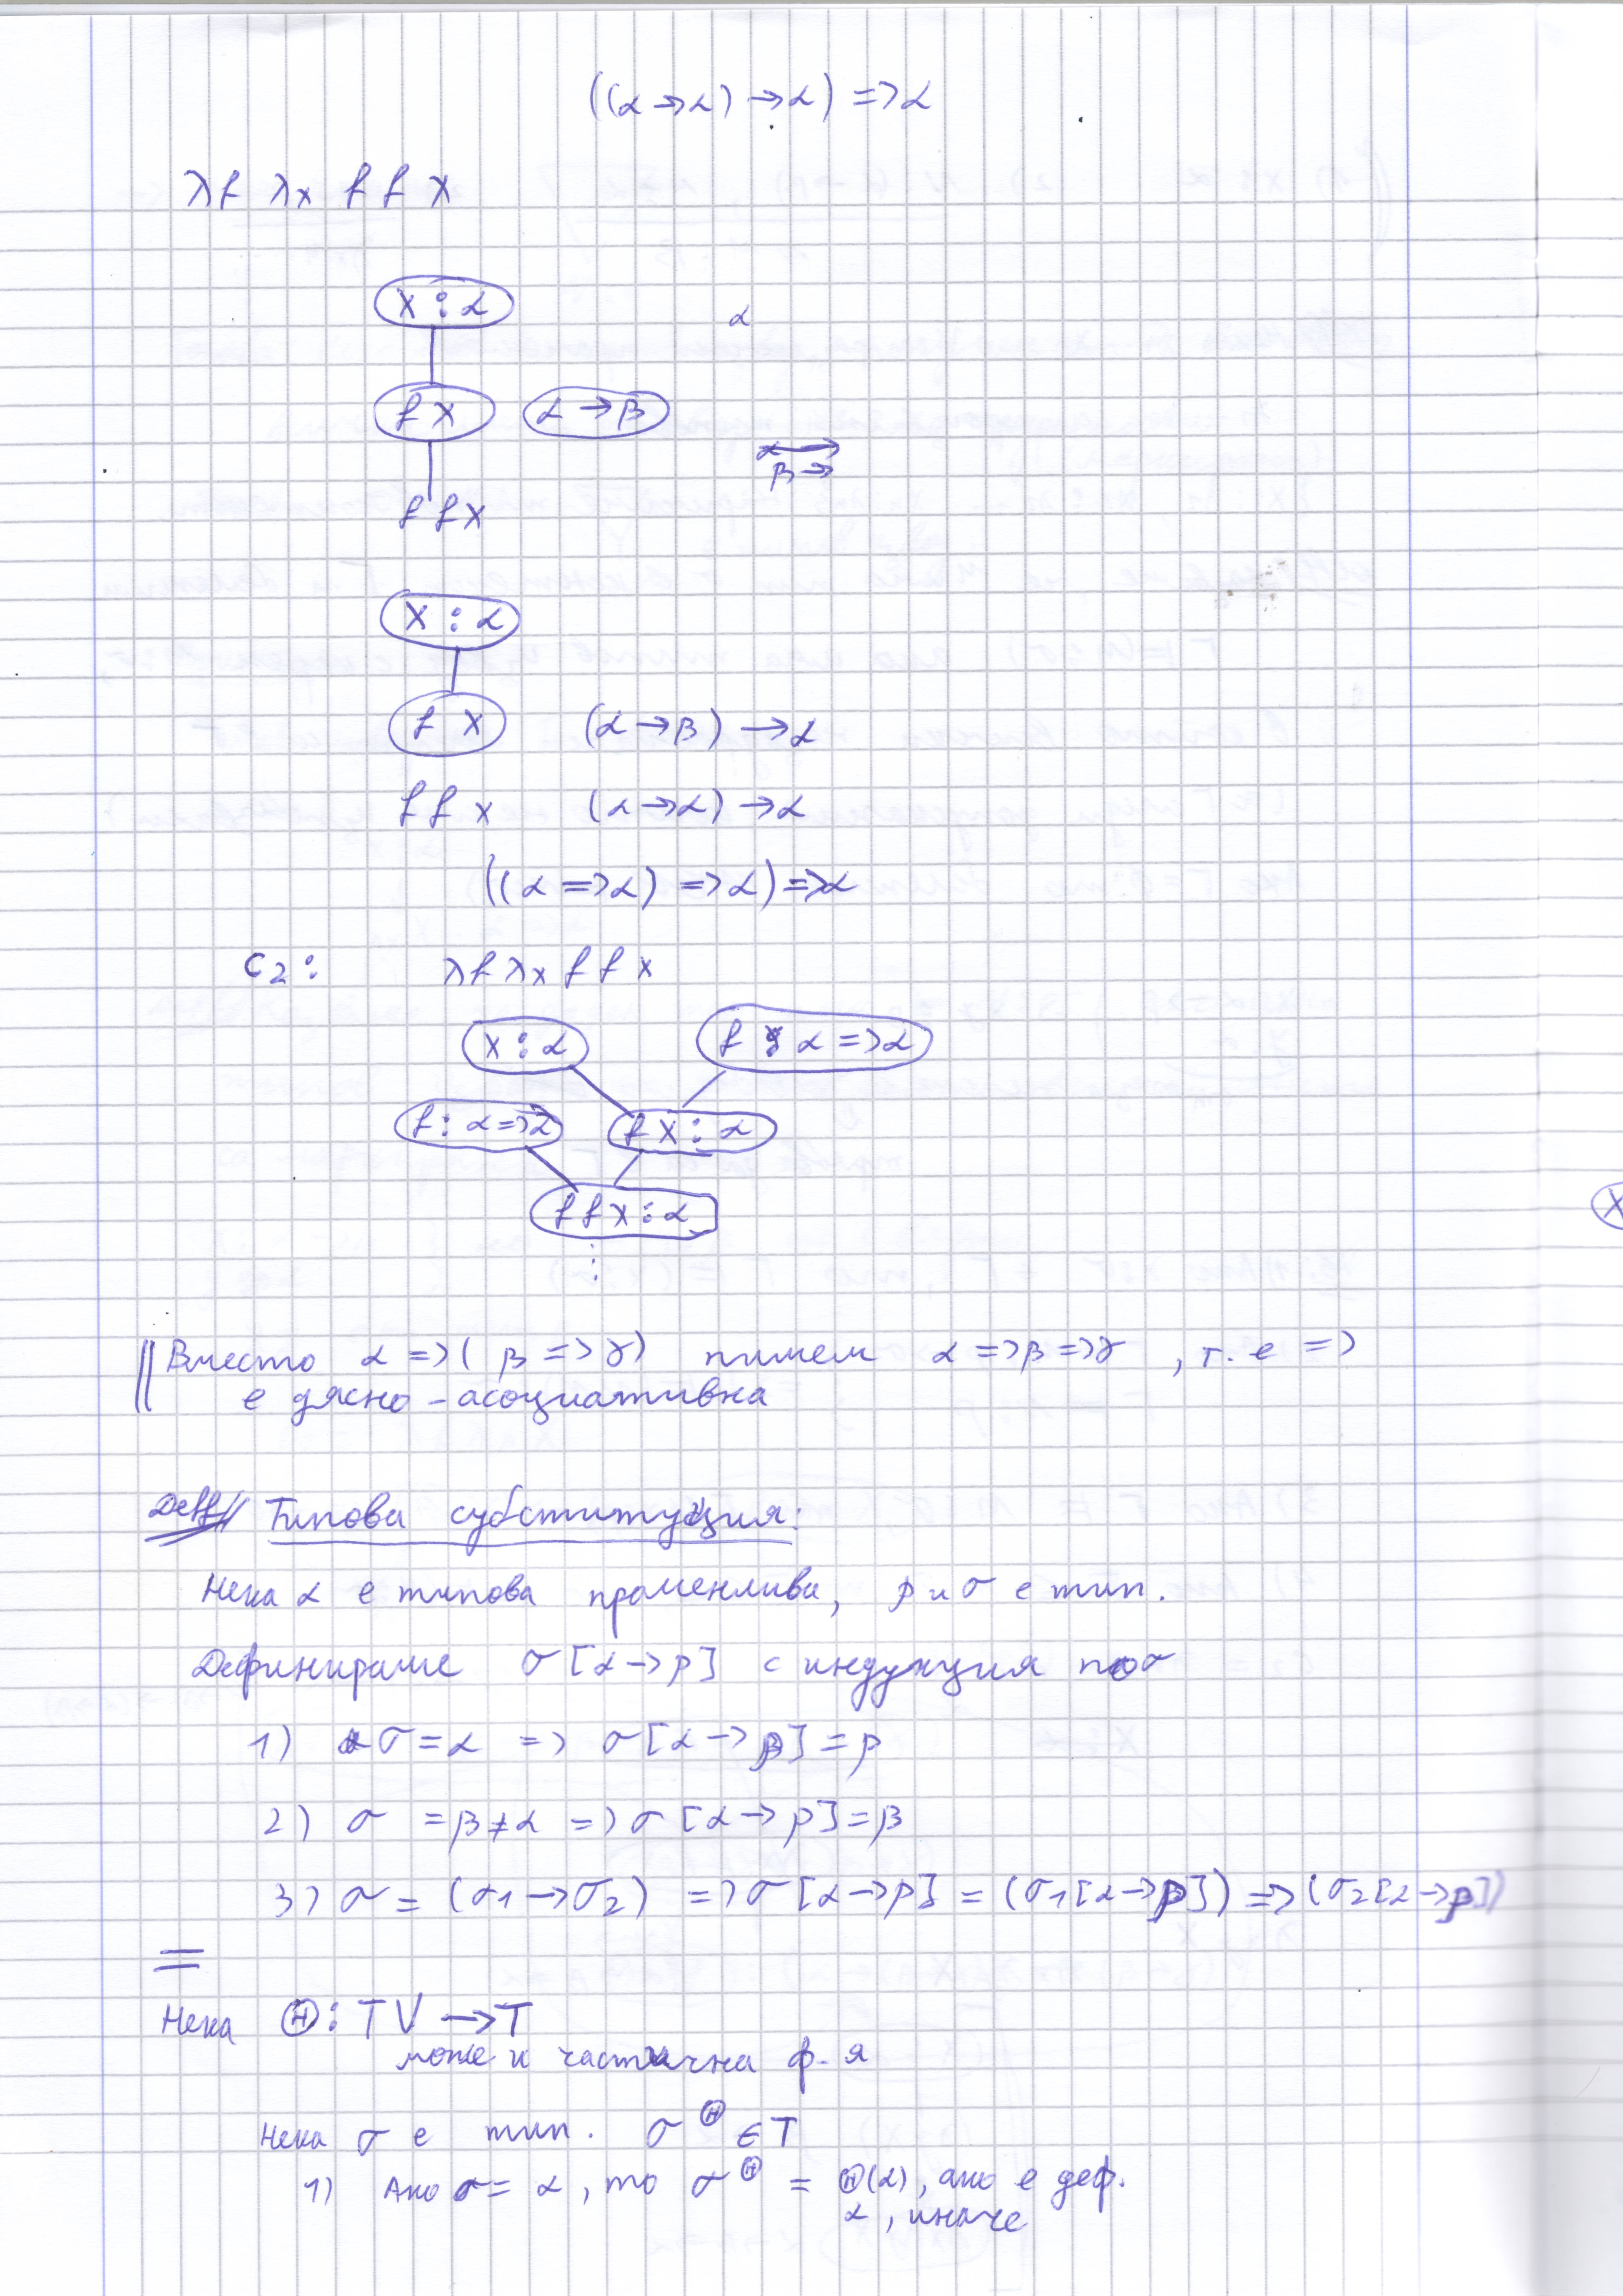 ((α → α) → α) => α
λf λx f f x
x : α
α
f x α → β
α →
β →
f f x
x : α
f x (α → β) → α
f f x (α → α) → α
((α => α) => α) => α
c2 : λf λx f f x
x : α f : α => α
f : α => α f x : α
f f x : α
⋮
Вместо α => ( β => γ) пишем α => β => γ , т. е =>
е дясно - асоциативна
Deff// Типова субституция:
Нека α е типова променлива, ρ и σ е тип.
Дефинираме σ [α -> ρ] с индукция по σ
1) σ = α => σ [α -> ρ] = ρ
2) σ = β ≠ α => σ [α -> ρ] = β
3) σ = (σ1 -> σ2) => σ [α -> ρ] = (σ1 [α -> ρ]) => (σ2 [α -> ρ])
Нека Θ : TV → T
може и частична ф-я
Нека σ е тип. σ^Θ ∈ T
1) Ако σ = α , то σ^Θ = Θ(α) , ако е деф.
α , иначе
x